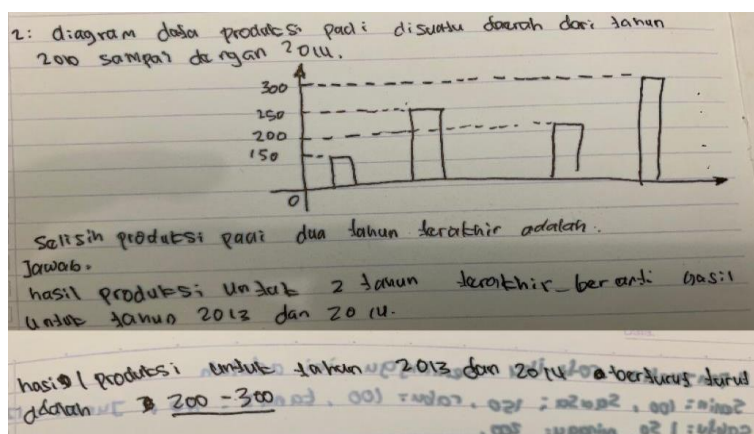 2: diagram data produksi padi disuatu daerah dari tahun
2010 sampai dengan 2014.
300
250
200
150
0
Selisih produksi padi dua tahun terakhir adalah.
Jawab.
hasil produksi untuk 2 tahun terakhir berarti hasil
untuk tahun 2013 dan 2014.
hasil produksi untuk tahun 2013 dan 2014 berturut turut
adalah 200 - 300